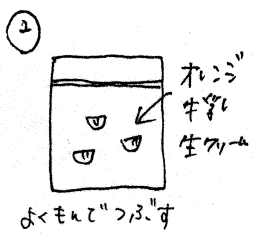 ②
オレンジ
牛乳
生クリーム
よくもんでつぶす